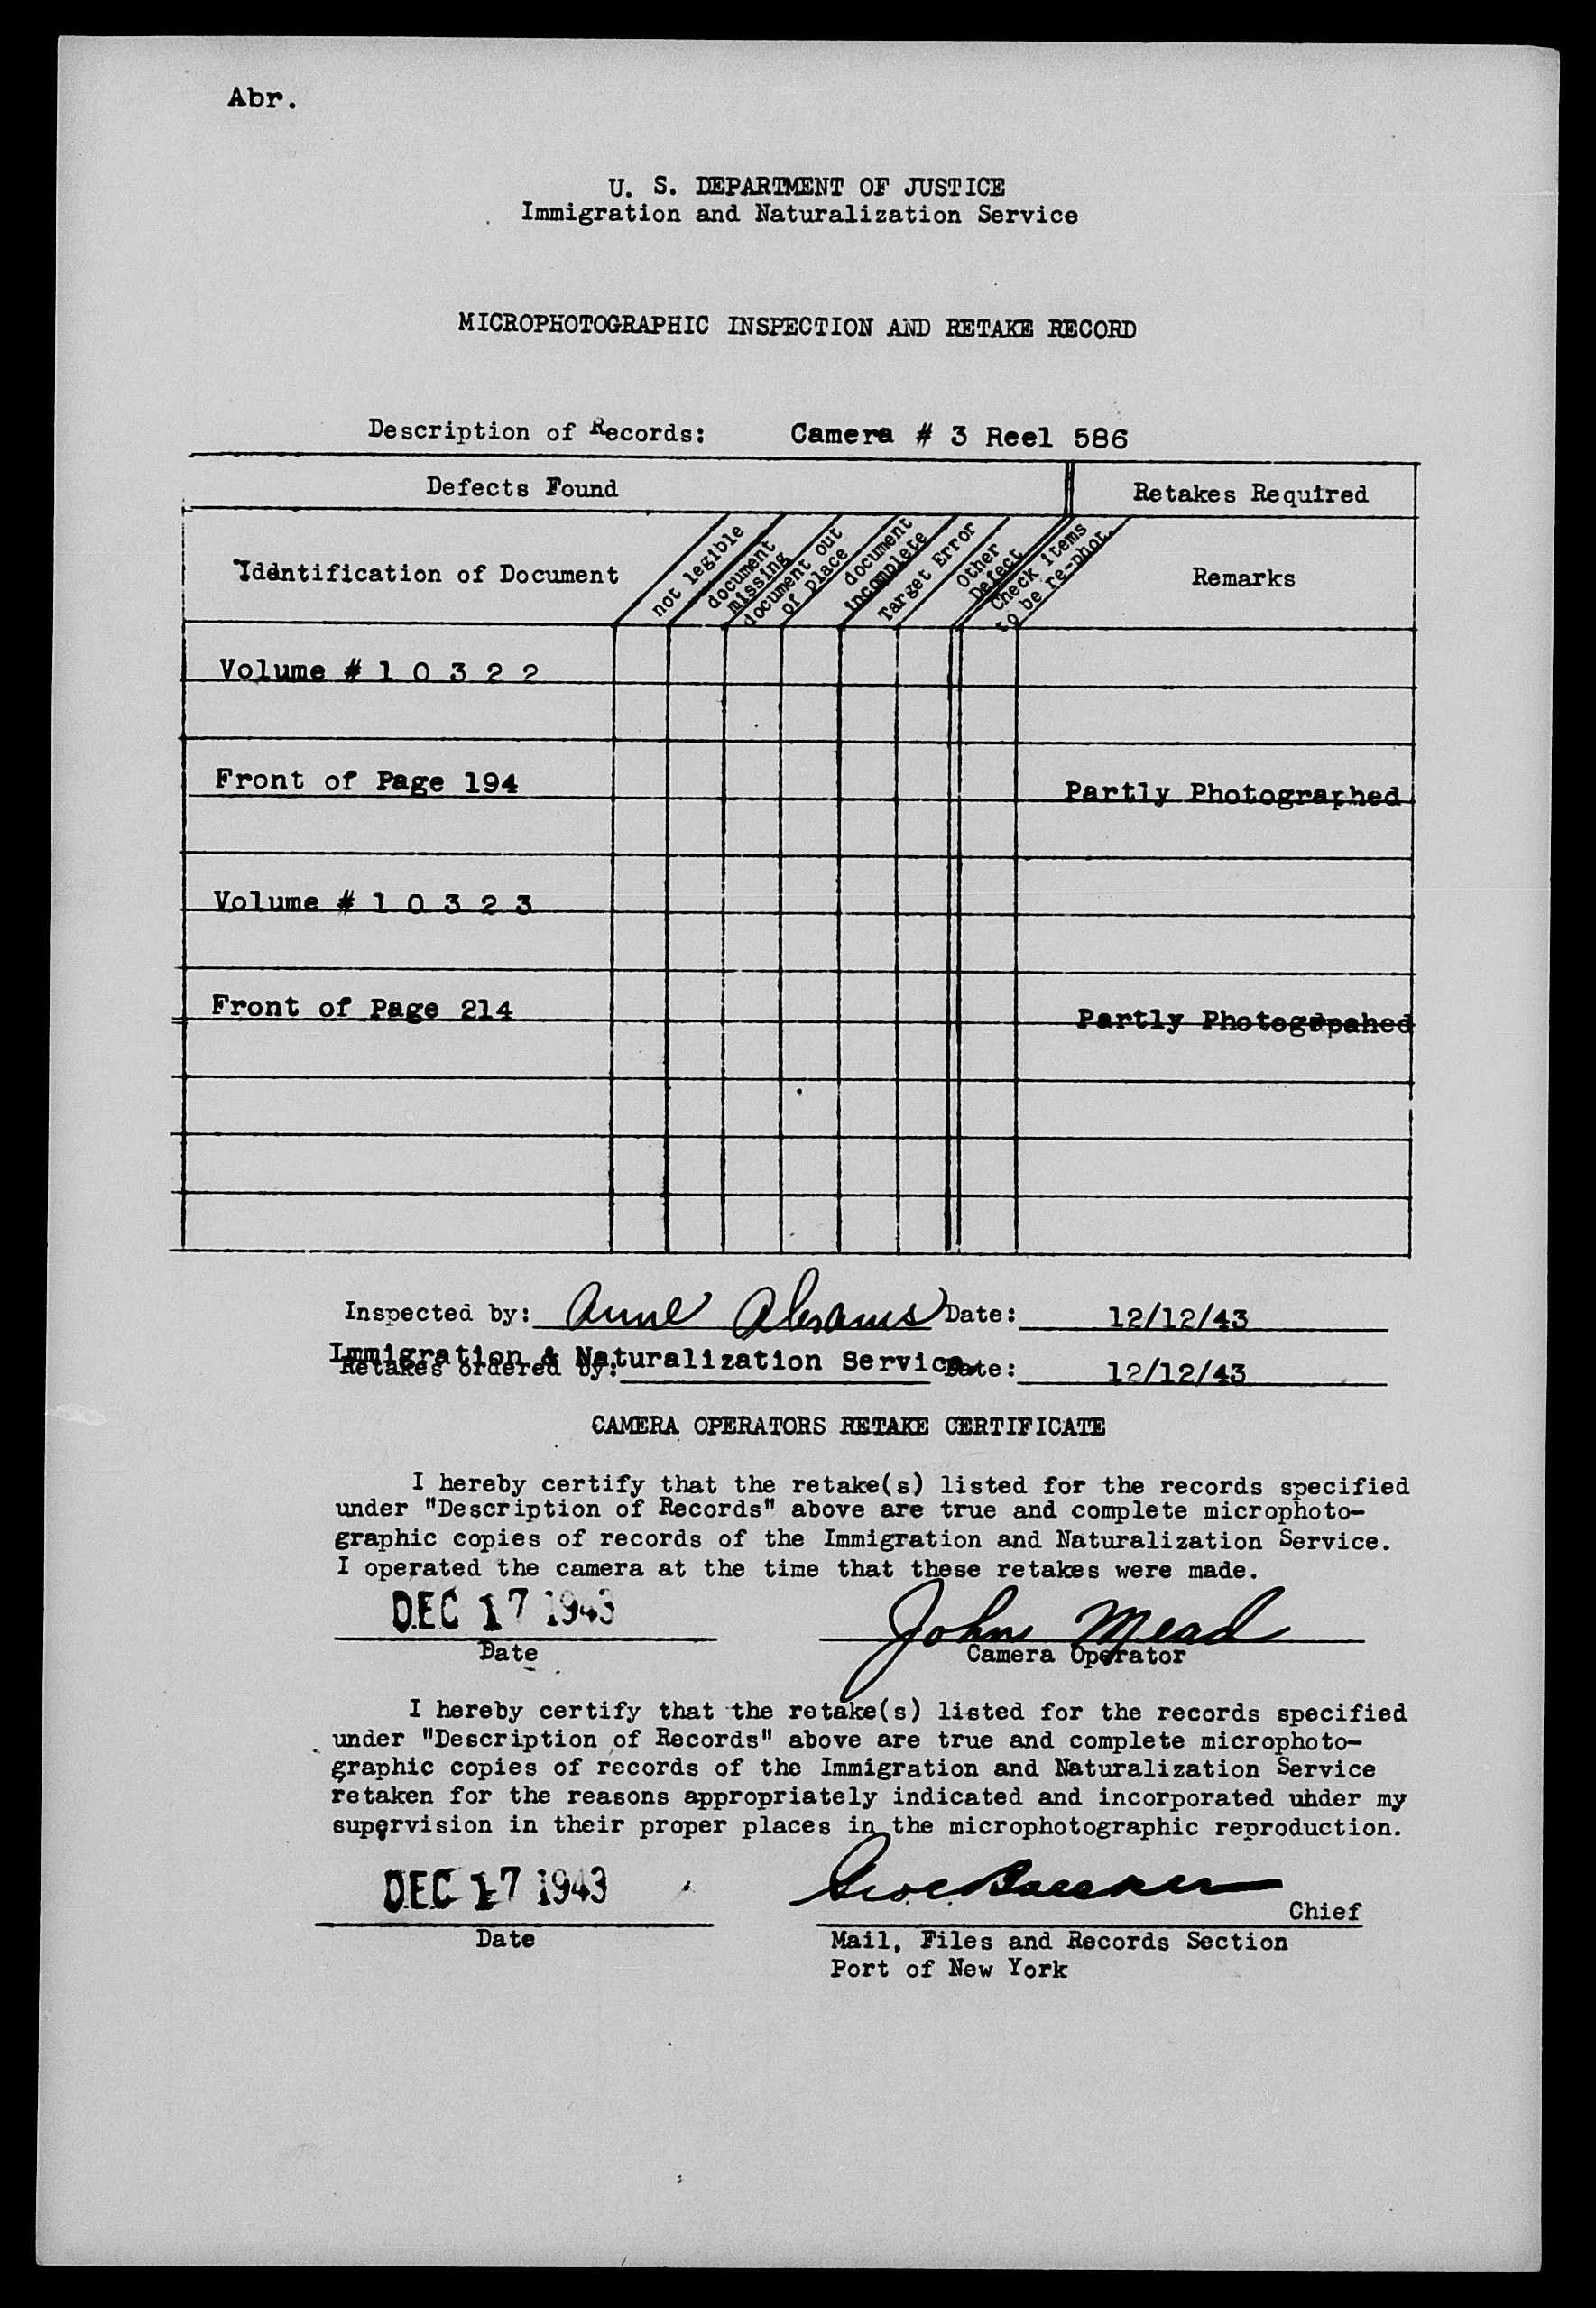 Abr.
U. S. DEPARTMENT OF JUSTICE
Immigration and Naturalization Service
MICROPHOTOGRAPHIC INSPECTION AND RETAKE RECORD
Description of Records: Camera # 3 Reel 586
Defects Found
Retakes Required
Identification of Document
not legible
document missing
document out of place
document incomplete
Target Error
Other Defect
Check items to be re-phot.
Remarks
Volume # 1 0 3 2 2
Front of Page 194
Partly Photographed
Volume # 1 0 3 2 3
Front of Page 214
Partly Photogrpahed
Inspected by: Anne Abrams Date: 12/12/43
Immigration & Naturalization Service.
Retakes ordered by: Date: 12/12/43
CAMERA OPERATORS RETAKE CERTIFICATE
I hereby certify that the retake(s) listed for the records specified
under "Description of Records" above are true and complete microphoto-
graphic copies of records of the Immigration and Naturalization Service.
I operated the camera at the time that these retakes were made.
DEC 17 1943
John Mead
Date
Camera Operator
I hereby certify that the retake(s) listed for the records specified
under "Description of Records" above are true and complete microphoto-
graphic copies of records of the Immigration and Naturalization Service
retaken for the reasons appropriately indicated and incorporated under my
supervision in their proper places in the microphotographic reproduction.
DEC 17 1943
Chief
Date
Mail, Files and Records Section
Port of New York